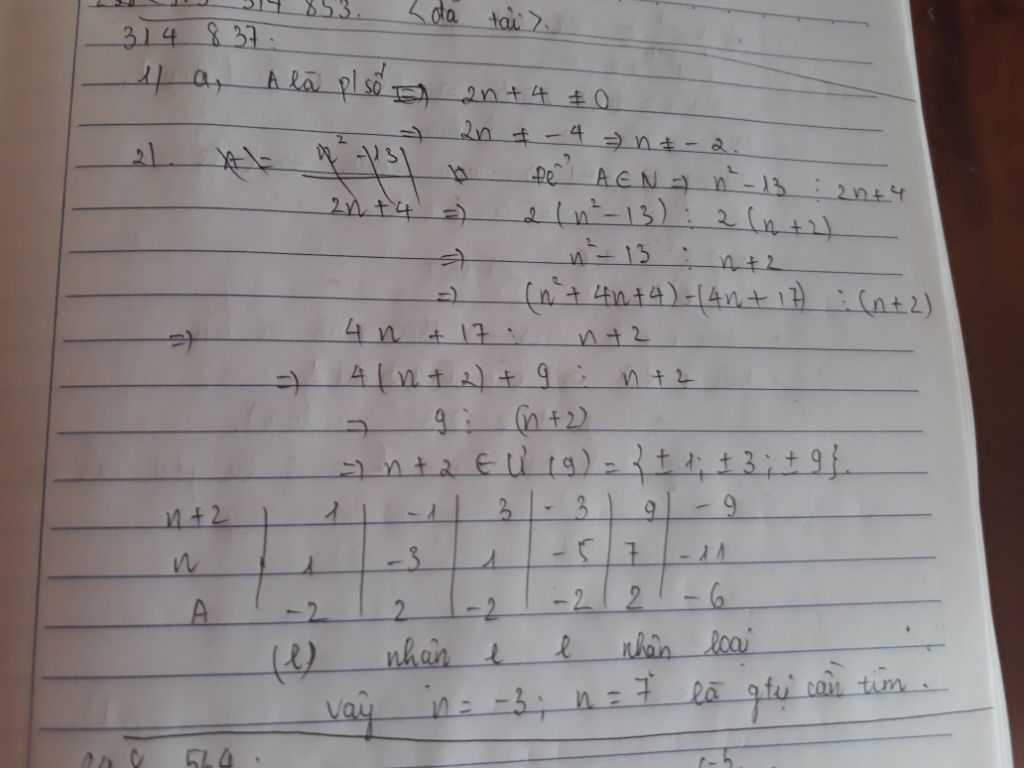 314 853. <đã tải>.
314 837.
1) a, A là p/số => 2n+4 ≠ 0
=> 2n ≠ -4 => n ≠ -2.
2). A = n² - 13 / 2n+4 Để A∈N => n² - 13 ⋮ 2n+4
=> 2(n² - 13) ⋮ 2(n+2)
=> n² - 13 ⋮ n+2
=> (n² + 4n+4) - (4n+17) ⋮ (n+2)
=> 4n + 17 ⋮ n+2
=> 4(n+2) + 9 ⋮ n+2
=> 9 ⋮ (n+2)
=> n+2 ∈ Ư(9) = {±1; ±3; ±9}.
n+2 | 1 | -1 | 3 | -3 | 9 | -9
n | 1 | -3 | 1 | -5 | 7 | -11
A | -2 | 2 | -2 | -2 | 2 | -6
(l) nhận l l nhận loại
vậy n = -3; n = 7 là gtrị cần tìm.
564.